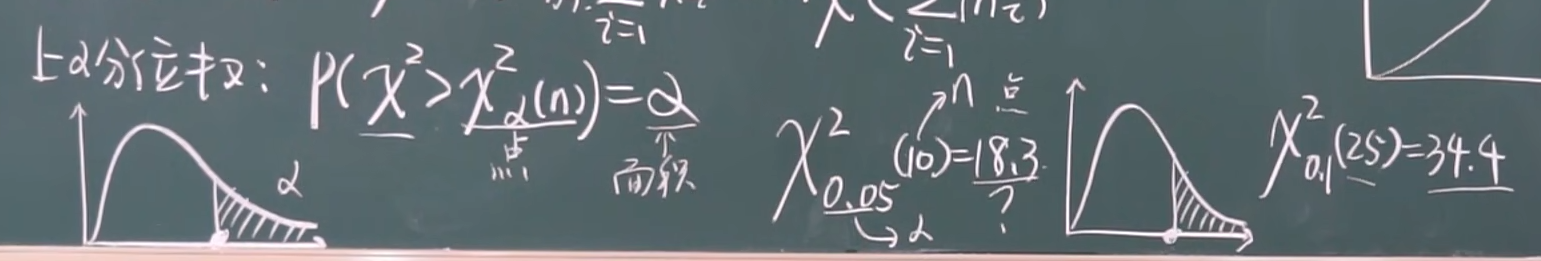 i=1
i=1
上α分位数: P(χ²>χ²_α(n))=α
点
面积
α
χ²_0.05(10)=18.3
n
点
α
?
χ²_0.1(25)=34.4